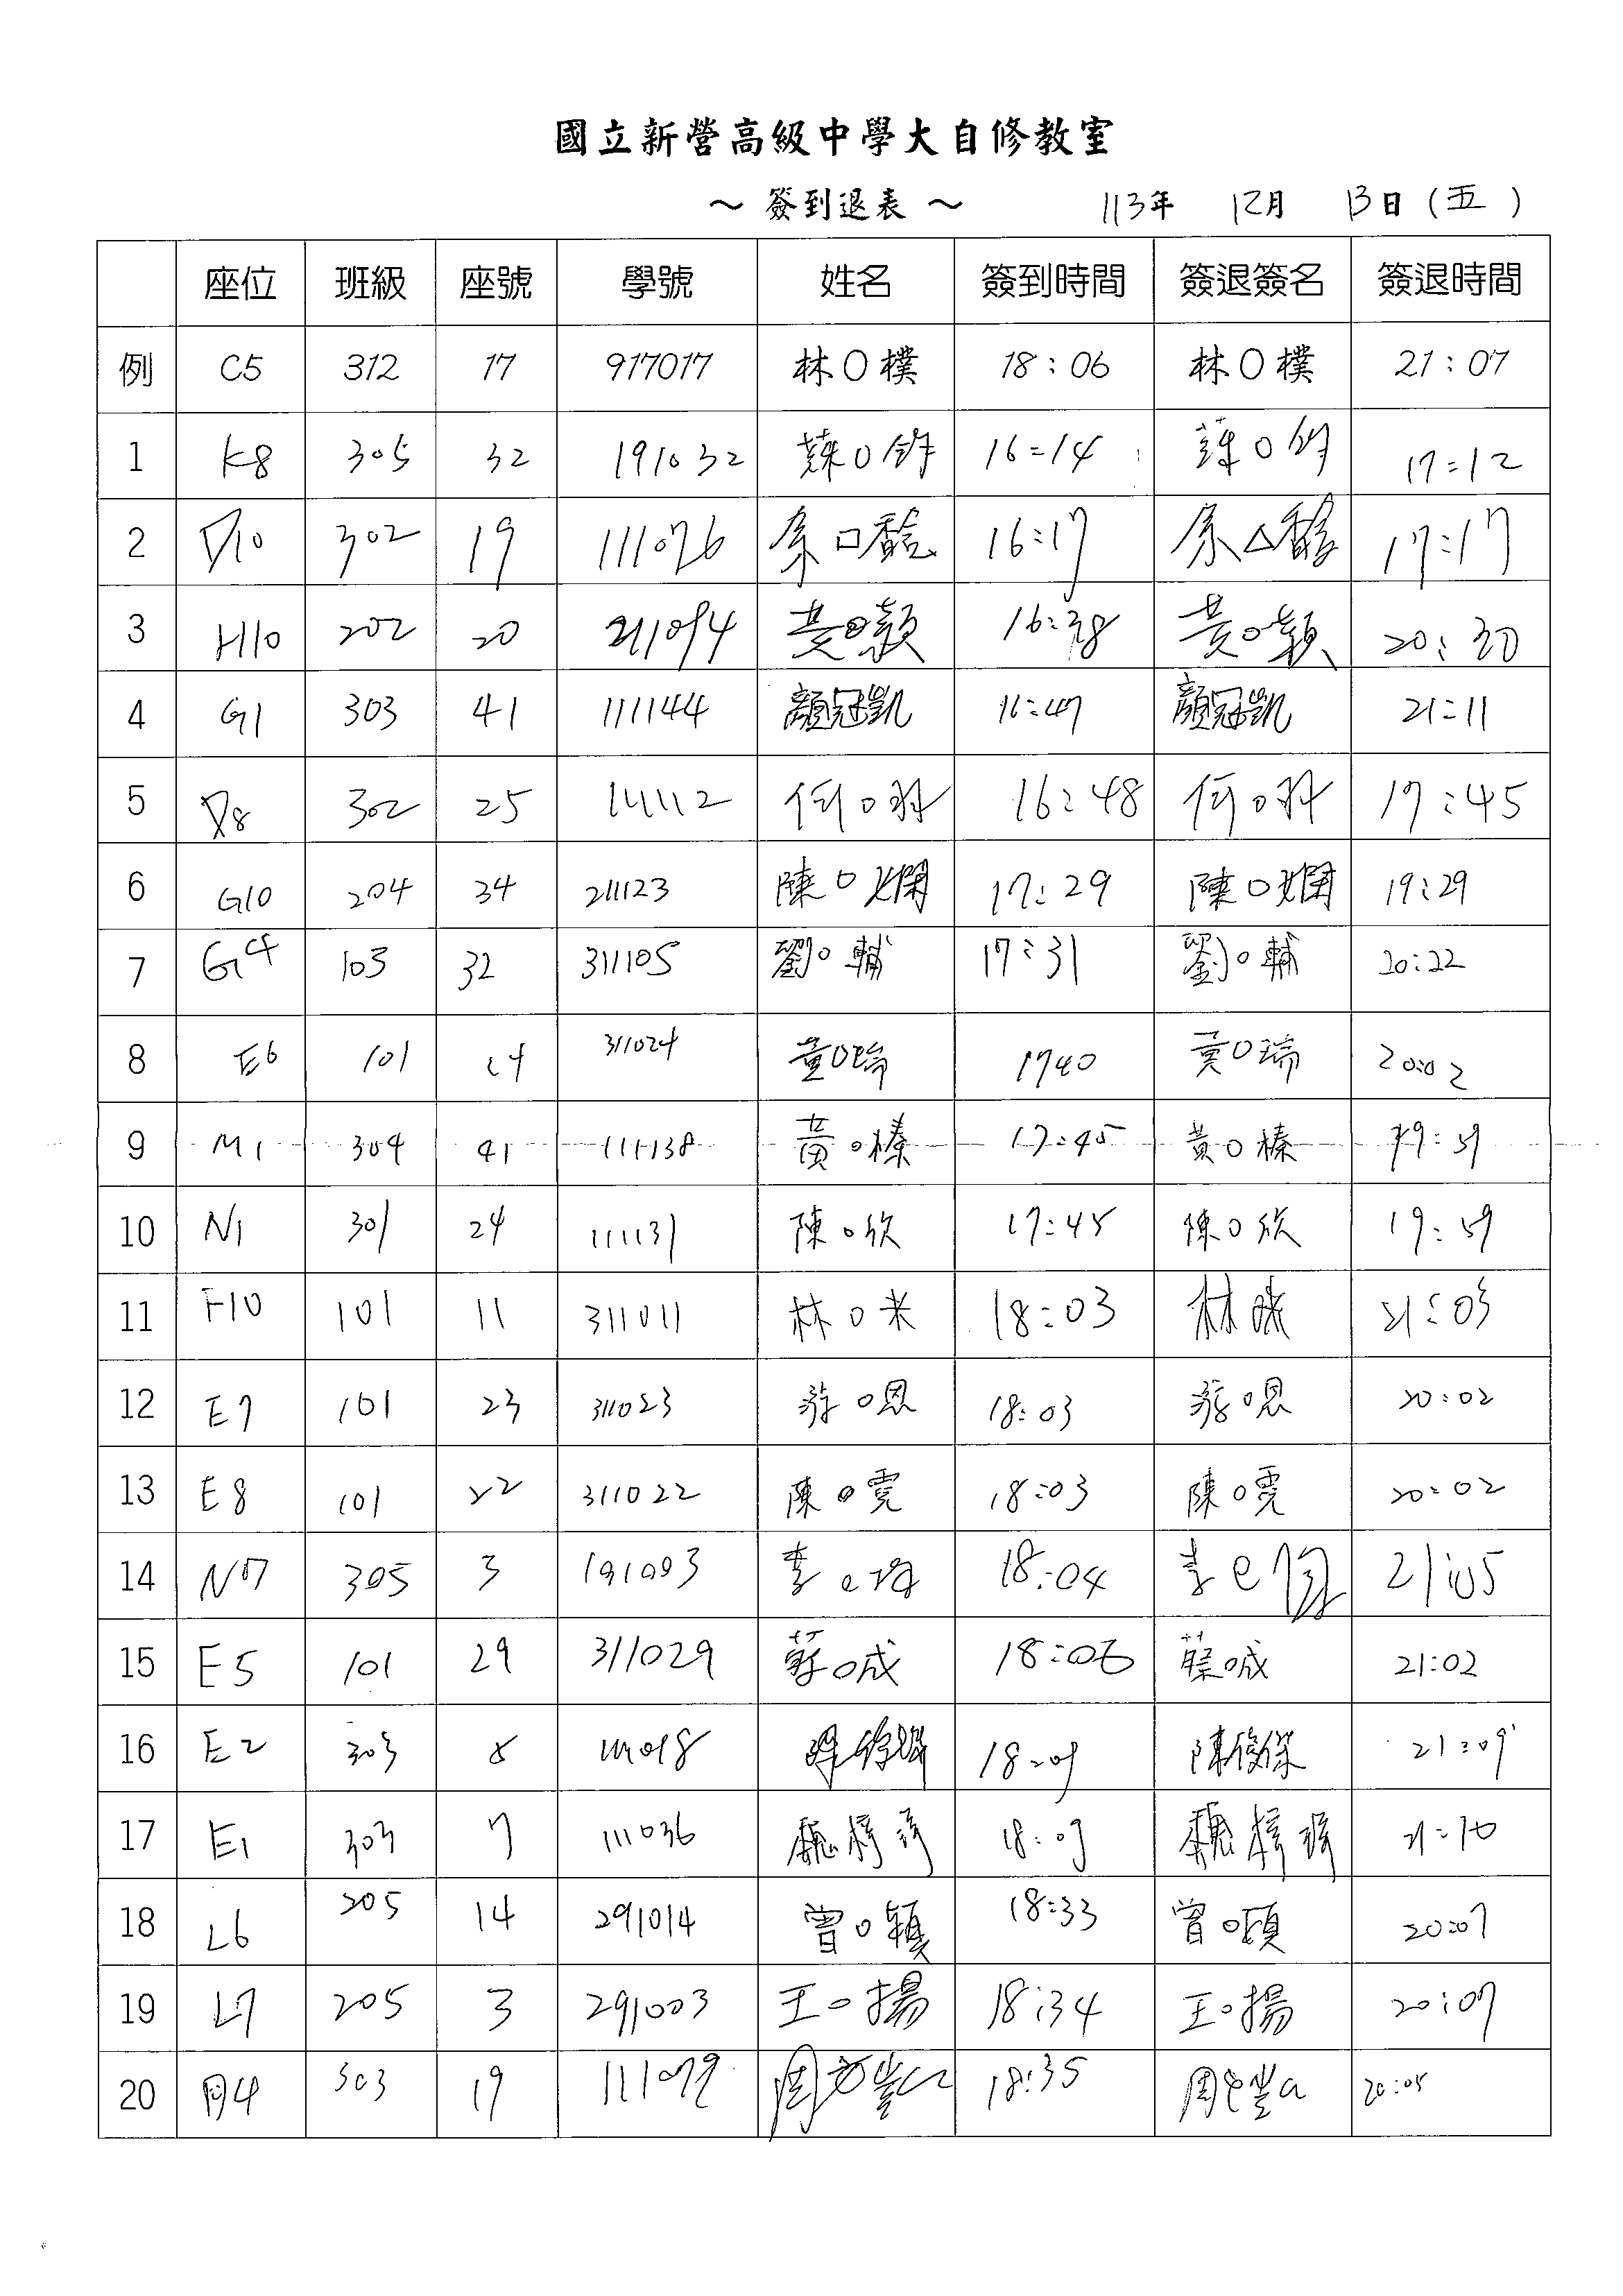 國立新營高級中學大自修教室
～ 簽到退表 ～ 113年 12月 13日 (五)
座位 班級 座號 學號 姓名 簽到時間 簽退簽名 簽退時間
例 C5 312 17 917017 林O樸 18:06 林O樸 21:07
1 K8 305 32 191032 16:14 17:12
2 D10 302 19 111076 余口馨 16:17 余△馨 17:17
3 H10 202 20 211094 黃O穎 16:38 黃O穎 20:30
4 G1 303 41 111144 顏冠凱 16:47 顏冠凱 21:11
5 D8 302 25 111112 何O羽 16:48 何O羽 17:45
6 G10 204 34 211123 陳O 17:29 陳O 19:29
7 G4 103 32 311105 劉O輔 17:31 劉O輔 20:22
8 E6 101 24 311024 黃O瑞 1740 黃O瑞 20:02
9 M1 304 41 111138 黃O榛 17:45 黃O榛 19:59
10 N1 301 24 111131 陳O欣 17:45 陳O欣 19:59
11 F10 101 11 311011 林O米 18:03 林 21:03
12 E7 101 23 311023 游O恩 18:03 游O恩 20:02
13 E8 101 22 311022 陳O霓 18:03 陳O霓 20:02
14 N7 305 3 191003 李 18:04 李 21:05
15 E5 101 29 311029 蔡O成 18:06 蔡O成 21:02
16 E2 303 8 111018 18:09 陳俊傑 21:09
17 E1 303 7 111036 魏梓 18:09 魏梓 21:10
18 L6 205 14 291014 曾O穎 18:33 曾O穎 20:07
19 L7 205 3 291003 王O揚 18:34 王O揚 20:07
20 303 19 111079 周 18:35 周 20:05